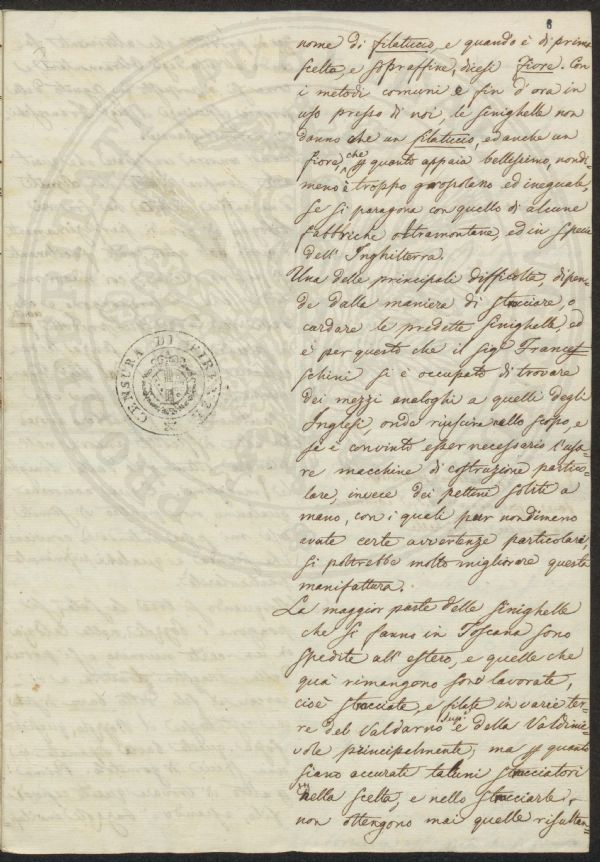 8
nome di filaticcio, e quando è di prima
scelta, e sopraffine, dicesi Fiore. Con
i metodi comuni e fin d'ora in
uso presso di noi, le sinighelle non
danno che un filaticcio, ed anche un
fiore, che quanto appaia bellissimo, nondi=
meno è troppo grossolano ed ineguale
se si paragona con quello di alcune
fabbriche oltramontane, ed in specie
dell'Inghilterra.
Una delle principali difficoltà, dipen=
de dalla maniera di stracciare, o
cardare le predette sinighelle, ed
è per questo che il Sig. Frances=
chini si è occupato di trovare
dei mezzi analoghi a quelli degli
Inglesi onde riuscire nello scopo, e
si è convinto esser necessario l'usa=
re macchine di costruzione partico=
lare, invece dei pettini soliti a
mano, con i quali pur nondimeno
avute certe avvertenze particolari,
si potrebbe molto migliorare questa
manifattura.
La maggior parte delle sinighelle
che si fanno in Toscana sono
spedite all'estero, e quelle che
quà rimangono sono lavorate,
cioè stracciate, e filate in varie ter=
re del Valdarno Sup.e e della Valdinie=
vole principalmente, ma quanto
siano accurate taluni stracciatori
nella scelta, e nello stracciarle
non ottengono mai quelle risultan=
CENSURA DI FIRENZE